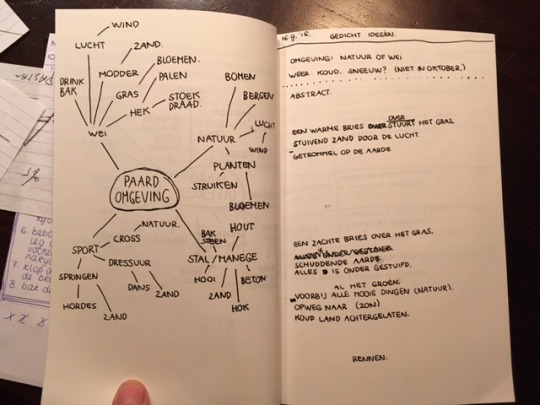 WIND
LUCHT
ZAND.
BLOEMEN.
MODDER
PALEN
DRINK
BAK
GRAS
STOEK
DRAAD.
HEK
WEI
BOMEN
BERGEN
LUCHT
NATUUR
WIND
PLANTEN
STRUIKEN
BLOEMEN
PAARD
OMGEVING
NATUUR.
CROSS
SPORT
DRESSUUR
SPRINGEN
DANS
ZAND
HORDES
ZAND
HOUT
BAK
STEEN
STAL/MANEGE
HOOI
BETON
ZAND
HOK
15.9.'16.
GEDICHT IDEEËN.
OMGEVING: NATUUR OF WEI
WEER: KOUD. SNEEUW? (NIET IN OKTOBER.)
ABSTRACT.
OVER
EEN WARME BRIES STUURT HET GRAS.
STUIVEND ZAND DOOR DE LUCHT.
GETROMMEL OP DE AARDE
EEN ZACHTE BRIES OVER HET GRAS.
SCHUDDENDE AARDE
ALLES IS ONDER GESTUIFD.
AL HET GROEN.
VOORBIJ ALLE MOOIE DINGEN (NATUUR).
OPWEG NAAR (ZON)
KOUD LAND ACHTERGELATEN.
RENNEN.